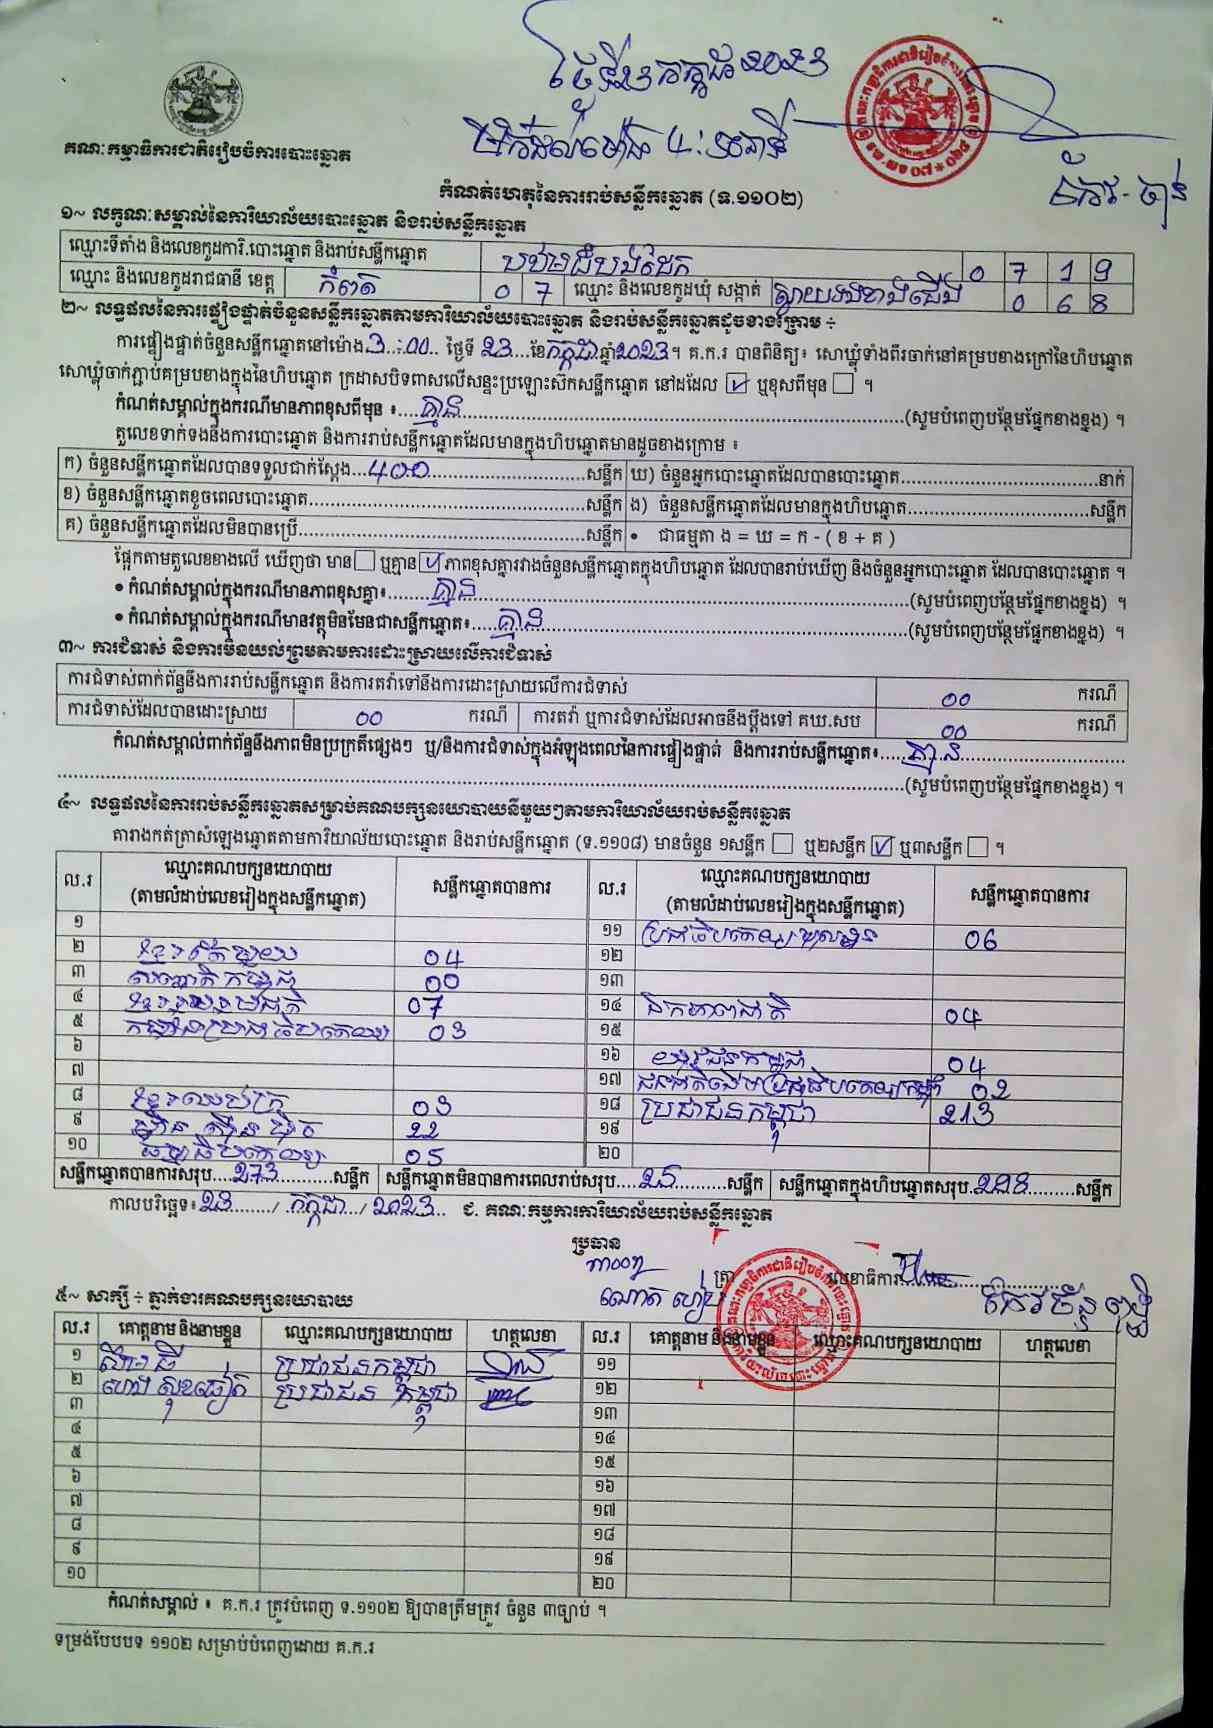 ថ្ងៃទី23 កក្កដា 2023
គណៈកម្មាធិការជាតិរៀបចំការបោះឆ្នោត
កំណត់ហេតុនៃការរាប់សន្លឹកឆ្នោត (ទ.១១០២)
១~ លក្ខណៈសម្គាល់នៃការិយាល័យបោះឆ្នោត និងរាប់សន្លឹកឆ្នោត
ឈ្មោះទីតាំង និងលេខកូដការិ.បោះឆ្នោត និងរាប់សន្លឹកឆ្នោត 0 7 1 9
ឈ្មោះ និងលេខកូដរាជធានី ខេត្ត កំពត 0 7 ឈ្មោះ និងលេខកូដឃុំ សង្កាត់ ស្វាយទងខាងជើង 0 6 8
២~ លទ្ធផលនៃការផ្ទៀងផ្ទាត់ចំនួនសន្លឹកឆ្នោតតាមការិយាល័យបោះឆ្នោត និងរាប់សន្លឹកឆ្នោតដូចខាងក្រោម ÷
ការផ្ទៀងផ្ទាត់ចំនួនសន្លឹកឆ្នោតនៅម៉ោង 3:00 ថ្ងៃទី 23 ខែ កក្កដា ឆ្នាំ 2023 ។ គ.ក.រ បានពិនិត្យ៖ សោឃ្លុំទាំងពីរចាក់នៅគម្របខាងក្រៅនៃហិបឆ្នោត
សោឃ្លុំចាក់ភ្ជាប់គម្របខាងក្នុងនៃហិបឆ្នោត ក្រដាសបិទពាសលើសន្ទះប្រឡោះស៊កសន្លឹកឆ្នោត នៅដដែល ☑ ឬខុសពីមុន ☐ ។
កំណត់សម្គាល់ក្នុងករណីមានភាពខុសពីមុន ៖ គ្មាន (សូមបំពេញបន្ថែមផ្នែកខាងខ្នង) ។
តួលេខទាក់ទងនឹងការបោះឆ្នោត និងការរាប់សន្លឹកឆ្នោតដែលមានក្នុងហិបឆ្នោតមានដូចខាងក្រោម ៖
ក) ចំនួនសន្លឹកឆ្នោតដែលបានទទួលជាក់ស្តែង 400 សន្លឹក ឃ) ចំនួនអ្នកបោះឆ្នោតដែលបានបោះឆ្នោត នាក់
ខ) ចំនួនសន្លឹកឆ្នោតខូចពេលបោះឆ្នោត សន្លឹក ង) ចំនួនសន្លឹកឆ្នោតដែលមានក្នុងហិបឆ្នោត សន្លឹក
គ) ចំនួនសន្លឹកឆ្នោតដែលមិនបានប្រើ សន្លឹក • ជាធម្មតា ង = ឃ = ក - ( ខ + គ )
ផ្អែកតាមតួលេខខាងលើ ឃើញថា មាន ☐ ឬគ្មាន ☑ ភាពខុសគ្នារវាងចំនួនសន្លឹកឆ្នោតក្នុងហិបឆ្នោត ដែលបានរាប់ឃើញ និងចំនួនអ្នកបោះឆ្នោត ដែលបានបោះឆ្នោត ។
• កំណត់សម្គាល់ក្នុងករណីមានភាពខុសគ្នា៖ គ្មាន (សូមបំពេញបន្ថែមផ្នែកខាងខ្នង) ។
• កំណត់សម្គាល់ក្នុងករណីមានវត្ថុមិនមែនជាសន្លឹកឆ្នោត៖ គ្មាន (សូមបំពេញបន្ថែមផ្នែកខាងខ្នង) ។
៣~ ការជំទាស់ និងការមិនយល់ព្រមតាមការដោះស្រាយលើការជំទាស់
ការជំទាស់ពាក់ព័ន្ធនឹងការរាប់សន្លឹកឆ្នោត និងការតវ៉ាទៅនឹងការដោះស្រាយលើការជំទាស់ 00 ករណី
ការជំទាស់ដែលបានដោះស្រាយ 00 ករណី ការតវ៉ា ឬការជំទាស់ដែលអាចនឹងប្តឹងទៅ គឃ.សប 00 ករណី
កំណត់សម្គាល់ពាក់ព័ន្ធនឹងភាពមិនប្រក្រតីផ្សេងៗ ឬ/និងការជំទាស់ក្នុងអំឡុងពេលនៃការផ្ទៀងផ្ទាត់ និងការរាប់សន្លឹកឆ្នោត៖ គ្មាន
(សូមបំពេញបន្ថែមផ្នែកខាងខ្នង) ។
៤~ លទ្ធផលនៃការរាប់សន្លឹកឆ្នោតសម្រាប់គណបក្សនយោបាយនីមួយៗតាមការិយាល័យរាប់សន្លឹកឆ្នោត
តារាងកត់ត្រាសំឡេងឆ្នោតតាមការិយាល័យបោះឆ្នោត និងរាប់សន្លឹកឆ្នោត (ទ.១១០៨) មានចំនួន ១សន្លឹក ☐ ឬ២សន្លឹក ☑ ឬ៣សន្លឹក ☐ ។
ល.រ ឈ្មោះគណបក្សនយោបាយ (តាមលំដាប់លេខរៀងក្នុងសន្លឹកឆ្នោត) សន្លឹកឆ្នោតបានការ ល.រ ឈ្មោះគណបក្សនយោបាយ (តាមលំដាប់លេខរៀងក្នុងសន្លឹកឆ្នោត) សន្លឹកឆ្នោតបានការ
១ ១១ 06
២ 04 ១២
៣ 00 ១៣
៤ 07 ១៤ ឯកភាពជាតិ 04
៥ 03 ១៥
៦ ១៦ យុវជនកម្ពុជា 04
៧ ១៧ 02
៨ 03 ១៨ ប្រជាជនកម្ពុជា 213
៩ ហ៊្វុនស៊ិនប៉ិច 22 ១៩
១០ 05 ២០
សន្លឹកឆ្នោតបានការសរុប 273 សន្លឹក សន្លឹកឆ្នោតមិនបានការពេលរាប់សរុប 25 សន្លឹក សន្លឹកឆ្នោតក្នុងហិបឆ្នោតសរុប 298 សន្លឹក
កាលបរិច្ឆេទ៖ 23 / កក្កដា / 2023 ជ. គណៈកម្មការការិយាល័យរាប់សន្លឹកឆ្នោត
ប្រធាន
ត្រា លេខាធិការ
៥~ សាក្សី ÷ ភ្នាក់ងារគណបក្សនយោបាយ
ល.រ គោត្តនាម និងនាមខ្លួន ឈ្មោះគណបក្សនយោបាយ ហត្ថលេខា ល.រ គោត្តនាម និងនាមខ្លួន ឈ្មោះគណបក្សនយោបាយ ហត្ថលេខា
១ ប្រជាជនកម្ពុជា ១១
២ ប្រជាជន កម្ពុជា ១២
៣ ១៣
៤ ១៤
៥ ១៥
៦ ១៦
៧ ១៧
៨ ១៨
៩ ១៩
១០ ២០
កំណត់សម្គាល់ ៖ គ.ក.រ ត្រូវបំពេញ ទ.១១០២ ឱ្យបានត្រឹមត្រូវ ចំនួន ៣ច្បាប់ ។
ទម្រង់បែបបទ ១១០២ សម្រាប់បំពេញដោយ គ.ក.រ